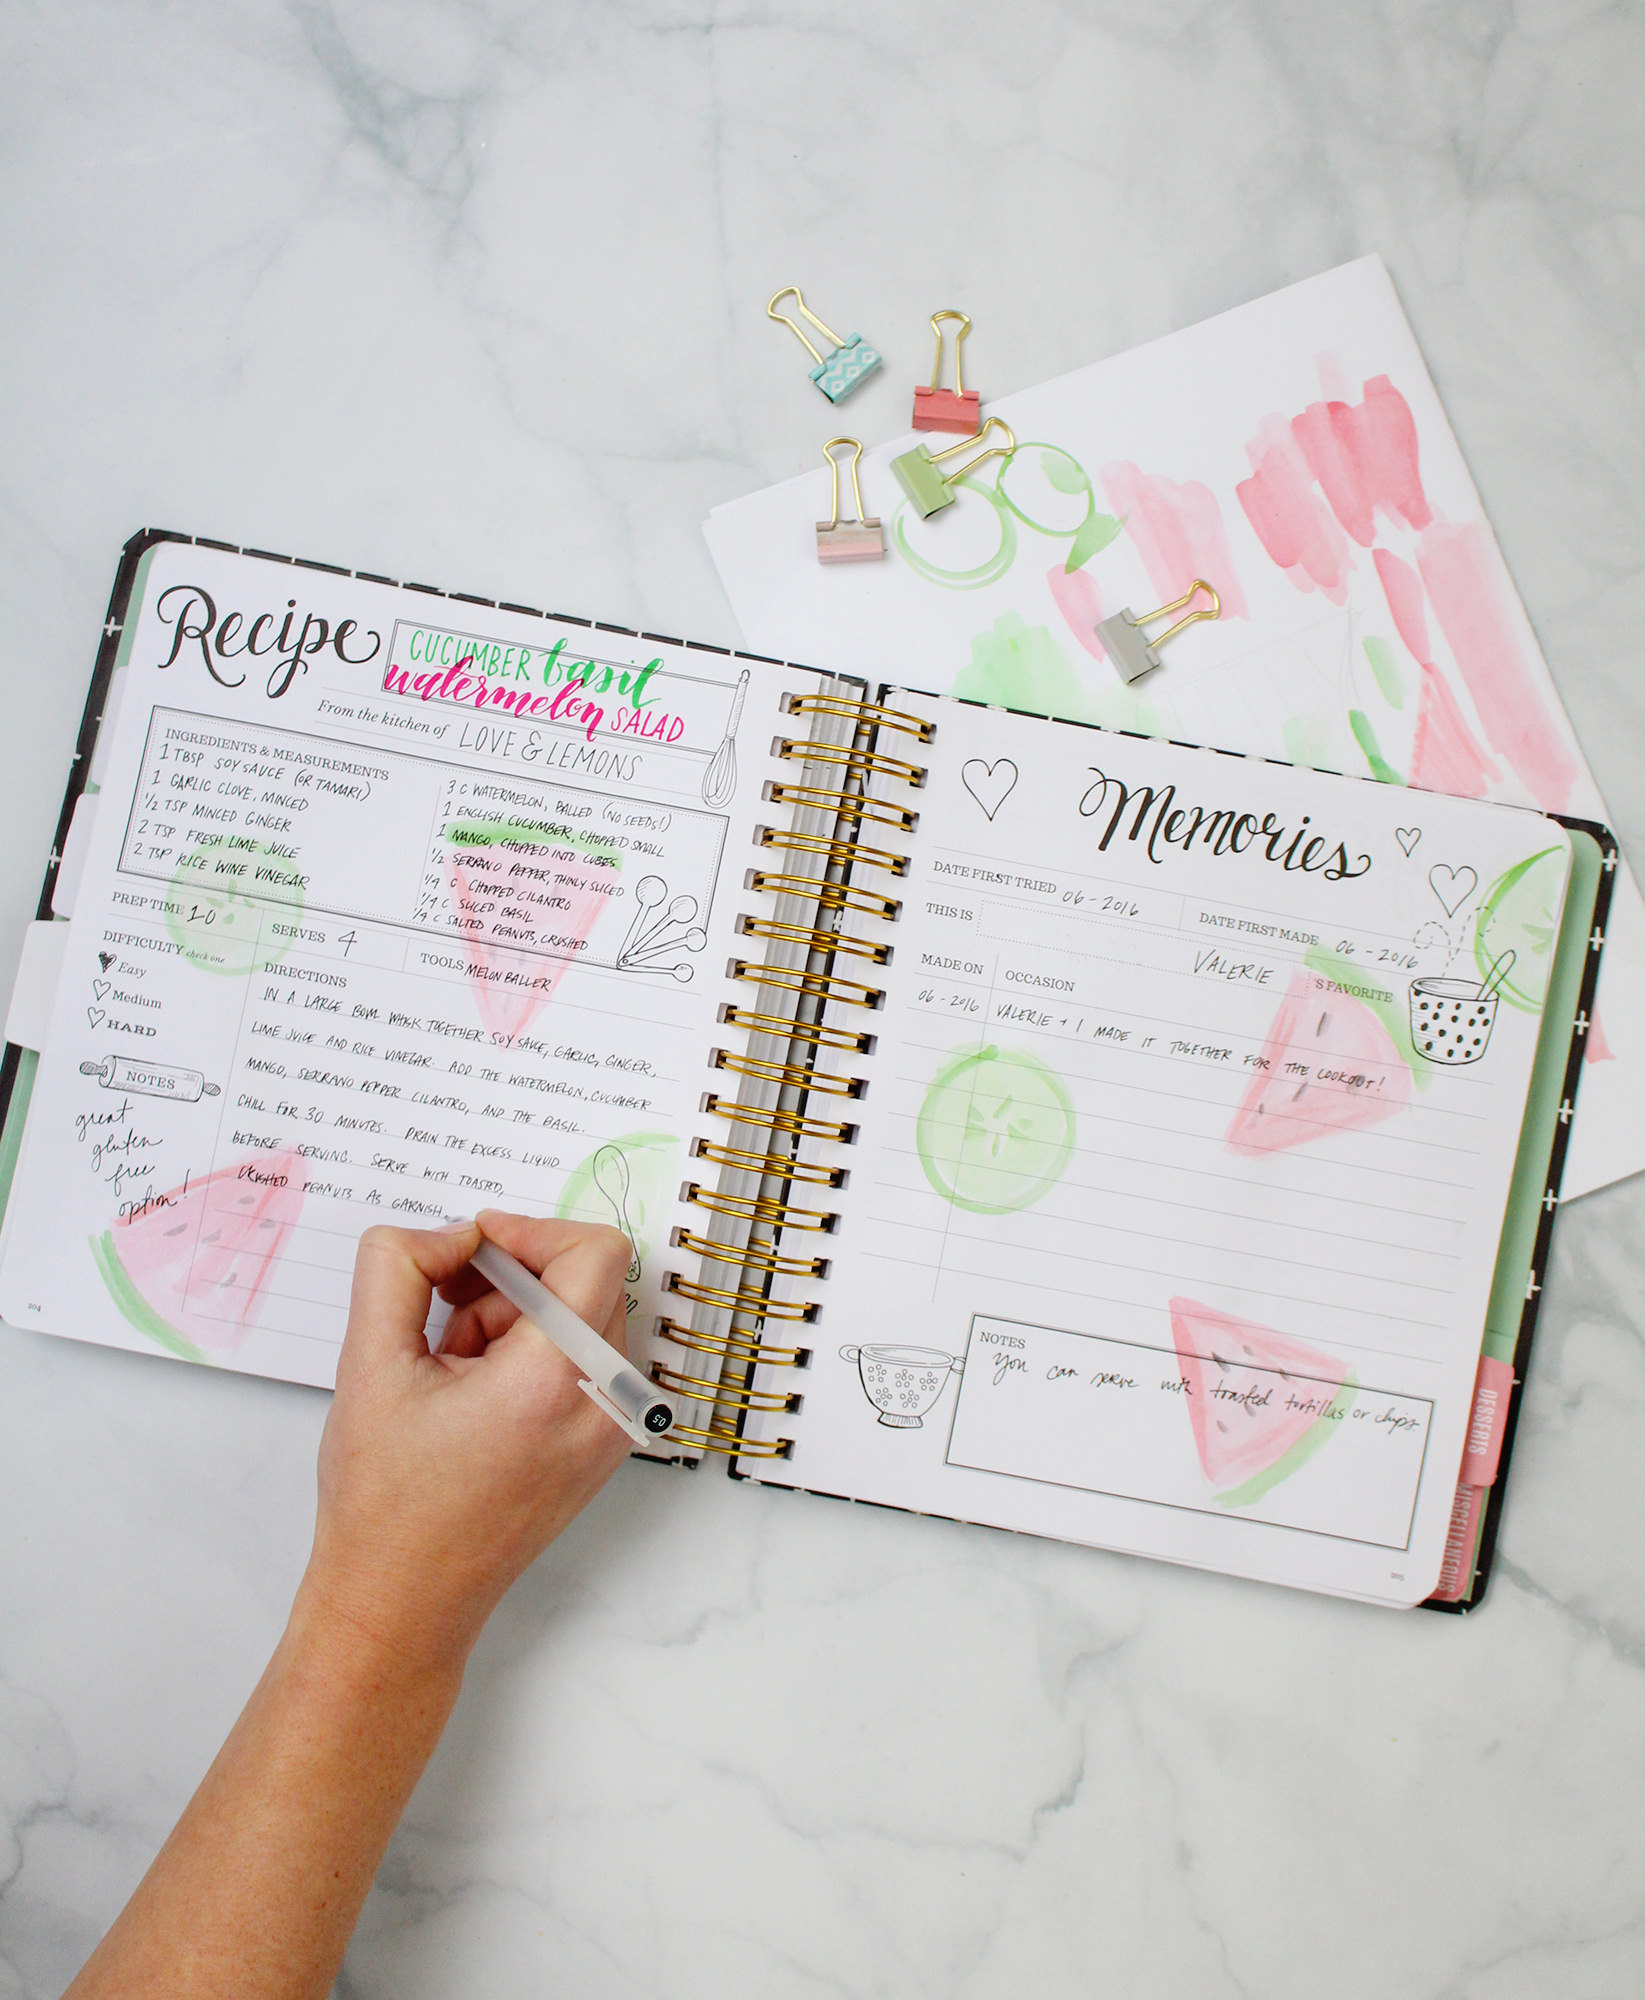 Recipe
CUCUMBER basil
watermelon SALAD
From the kitchen of LOVE & LEMONS
INGREDIENTS & MEASUREMENTS
1 TBSP SOY SAUCE (OR TAMARI)
1 GARLIC CLOVE, MINCED
1/2 TSP MINCED GINGER
2 TSP FRESH LIME JUICE
2 TSP RICE WINE VINEGAR
3 C WATERMELON, BALLED (NO SEEDS!)
1 ENGLISH CUCUMBER, CHOPPED SMALL
1 MANGO, CHOPPED INTO CUBES
1/2 SERRANO PEPPER, THINLY SLICED
1/4 C CHOPPED CILANTRO
1/4 C SLICED BASIL
1/4 C SALTED PEANUTS, CRUSHED
PREP TIME 10
SERVES 4
TOOLS MELON BALLER
DIFFICULTY check one
Easy
Medium
HARD
NOTES
great
gluten
free
option!
DIRECTIONS
IN A LARGE BOWL WHISK TOGETHER SOY SAUCE, GARLIC, GINGER,
LIME JUICE AND RICE VINEGAR. ADD THE WATERMELON, CUCUMBER
MANGO, SERRANO PEPPER CILANTRO, AND THE BASIL.
CHILL FOR 30 MINUTES. DRAIN THE EXCESS LIQUID
BEFORE SERVING. SERVE WITH TOASTED,
CRUSHED PEANUTS AS GARNISH.
204
0.5
Memories
DATE FIRST TRIED 06-2016
DATE FIRST MADE 06-2016
THIS IS VALERIE 'S FAVORITE
MADE ON
OCCASION
06-2016 VALERIE + I MADE IT TOGETHER FOR THE COOKOUT!
NOTES
You can serve with toasted tortillas or chips.
205
DESSERTS
MISCELLANEOUS